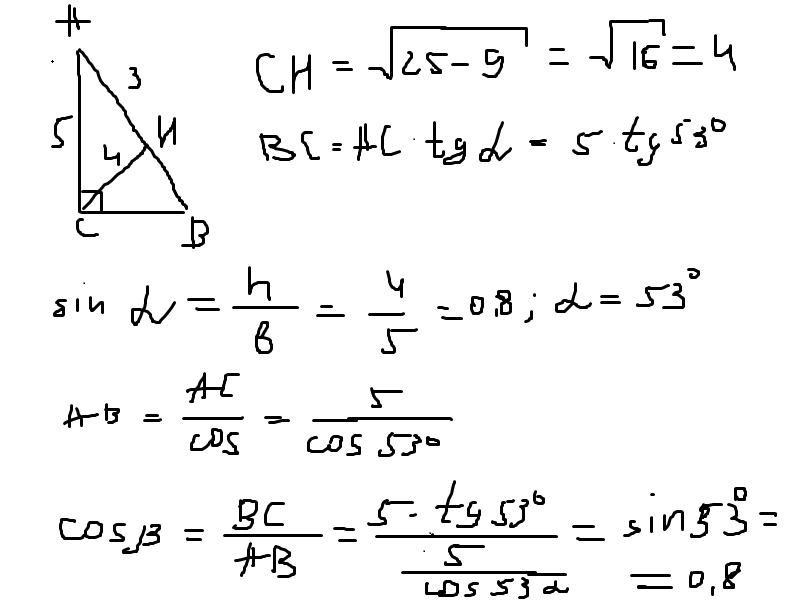 A
3
5
4
H
C
B
CH = √25-9 = √16 = 4
BC = AC · tg α = 5 · tg 53°
sin α = h/b = 4/5 = 0,8; α = 53°
AB = AC/cos = 5/cos 53°
cosβ = BC/AB = 5 · tg 53°/(5/cos 53 α) = sin 53° =
= 0,8